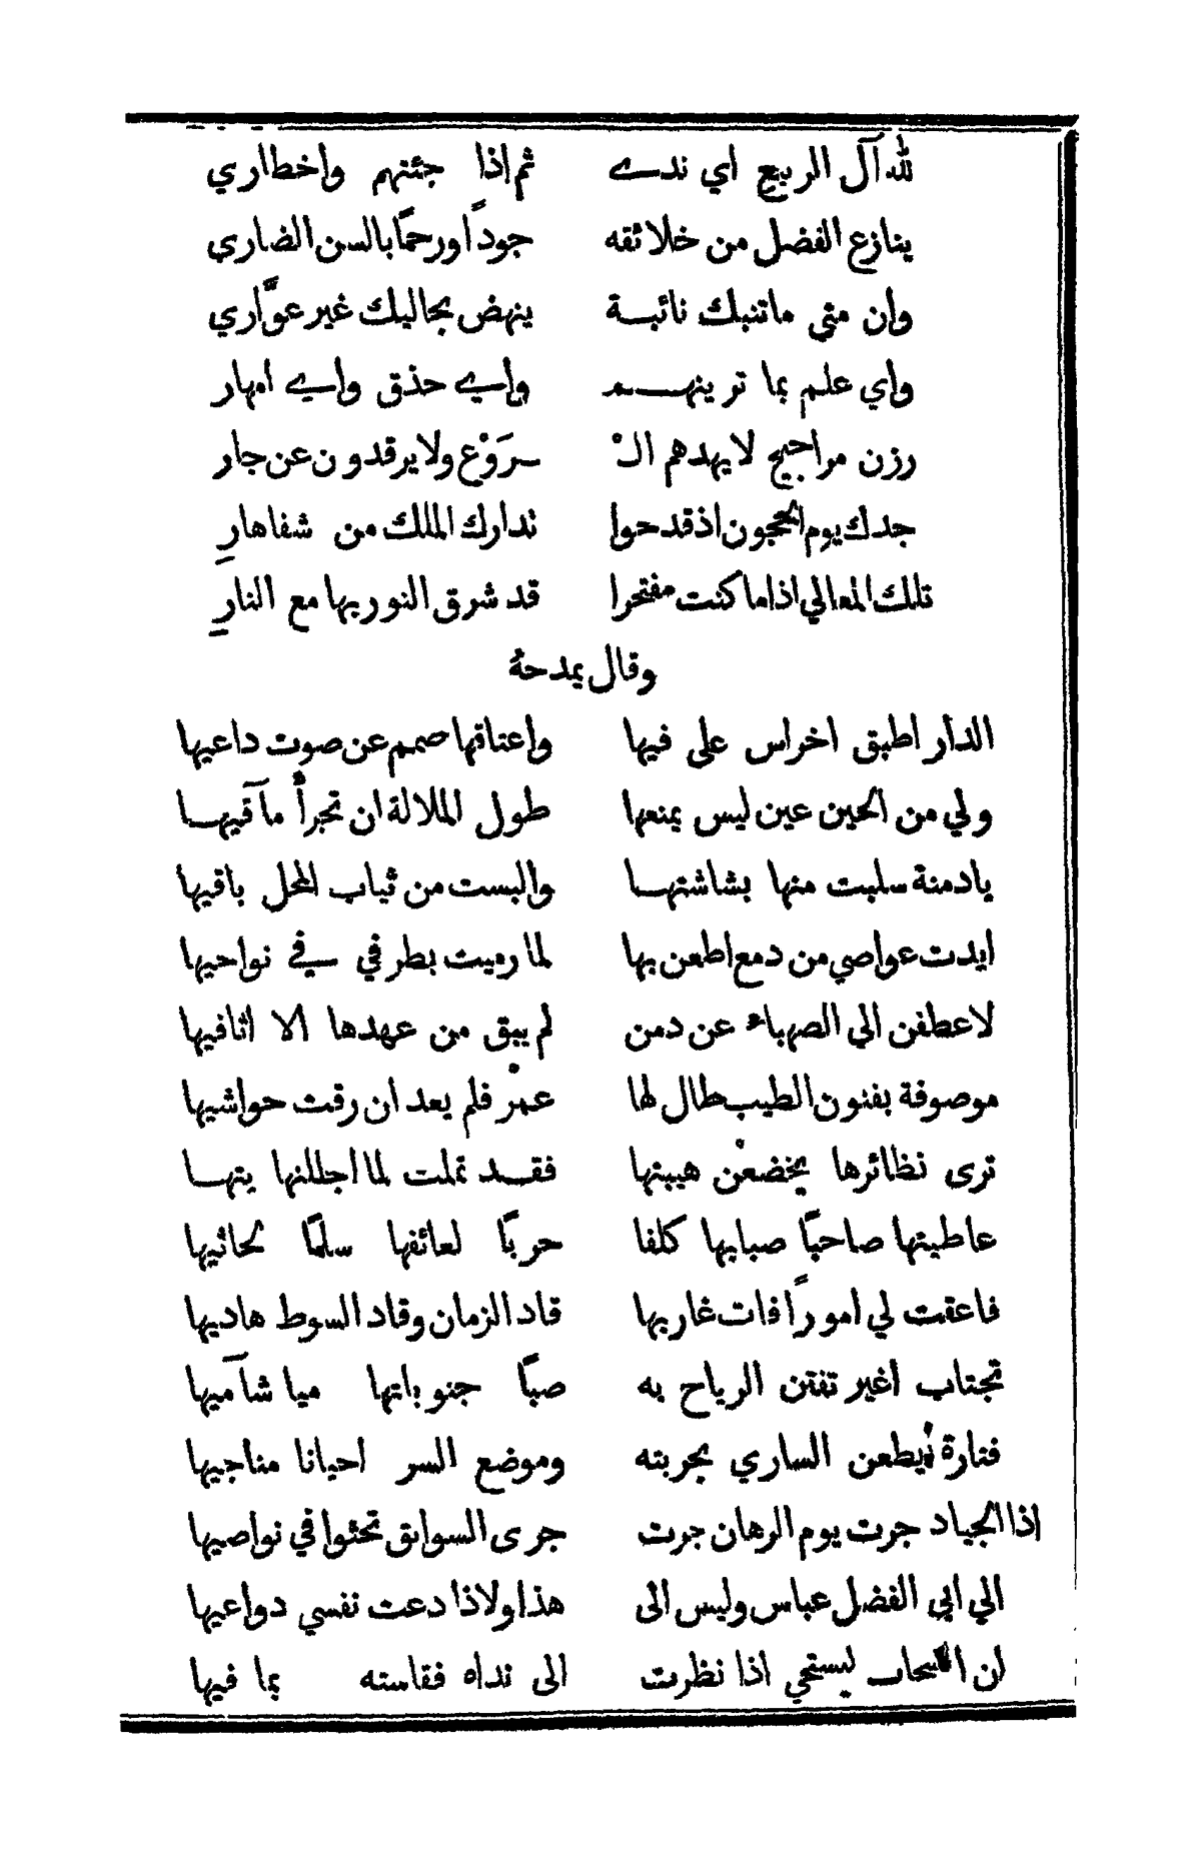 لله آل الربيع اي ندے ثم اذا جئتهم واخطاري
ينازع الفضل من خلائقه جوداً ورحمًا بالسن الضاري
وان متي ماتنبك نائبة ينهض بجاليك غير عوّاري
واي علم بما تر ينهم واے حذق واے امهار
رزن مراجيح لايهدهم الْ سرَوْع ولايرقدون عن جار
جدك يوم الحجون اذقدحوا تدارك الملك من شفاهارِ
تلك المعالي اذاماكنت مفتخرا قد شرق النوربها مع النارِ
وقال يمدحهُ
الدار اطبق اخراس علي فيها واعتاقها صمم عن صوت داعيها
ولي من الحين عين ليس يمنعها طول الملالة ان تجرأ مآقيها
يادمنة سلبت منها بشاشتها والبست من ثياب المحل باقيها
ايدت عواصي من دمع اطعن بها لما رميت بطرفي في نواحيها
لاعطفن الي الصهباء عن دمن لم يبق من عهدها الا اثافيها
موصوفة بفنون الطيب طال لها عمرْ فلم يعد ان رقت حواشيها
ترى نظائرها يخضعْن هيبتها فقد تملت لما اجللنها يتها
عاطيتها صاحبًا صبابها كلفا حربًا لعائفها سلمًا لحاثيها
فاعقت لي اموراً فات غاربها قاد الزمان وقاد السوط هاديها
تجتاب اغير تفتن الرياح به صبًا جنو باتها ميا شآميها
فتارة يطعن الساري بحربته وموضع السر احيانا مناجيها
اذا الجياد جرت يوم الرهان جرت جرى السوابق تحثوا في نواصيها
الي ابي الفضل عباس وليس الى هذا ولاذا دعت نفسي دواعيها
ان السحاب ليستحي اذا نظرت الى نداه فقاسته بما فيها